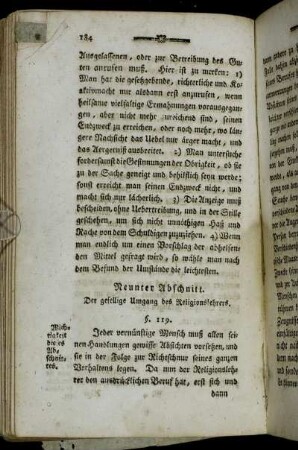 184
Ausgelassenen, oder zur Betreibung des Gu-
ten anrufen muß. Hier ist zu merken: 1)
Man hat die gesetzgebende, richterliche und Ko-
aktivmacht nur alsdann erst anzurufen, wenn
heilsame vielfältige Ermahnungen vorausgegan-
gen, aber nicht mehr zureichend sind, seinen
Endzweck zu erreichen, oder noch mehr, wo län-
gere Nachsicht das Uebel nur ärger macht, und
das Aergerniß ausbreitet. 2) Man untersuche
fordersamst die Gesinnungen der Obrigkeit, ob sie
zu der Sache geneigt und behilflich seyn werde;
sonst erreicht man seinen Endzweck nicht, und
macht sich nur lächerlich. 3) Die Anzeige muß
bescheiden, ohne Uebertreibung, und in der Stille
geschehen, um sich nicht unnöthigen Haß und
Rache von dem Schuldigen zuzuziehen. 4) Wenn
man endlich um einen Vorschlag der abhelfen-
den Mittel gefragt wird, so wähle man nach
dem Befund der Umstände die leichtesten.
Neunter Abschnitt.
Der gesellige Umgang des Religionslehrers.
§. 119.
Wich-
tigkeit
dieses
Ab-
schnit-
tes.
Jeder vernünftige Mensch muß allen sei-
nen Handlungen gewisse Absichten vorsetzen, und
sie in der Folge zur Richtschnur seines ganzen
Verhaltens legen. Da nun der Religionsleh-
rer den ausdrücklichen Beruf hat, erst sich und
dann